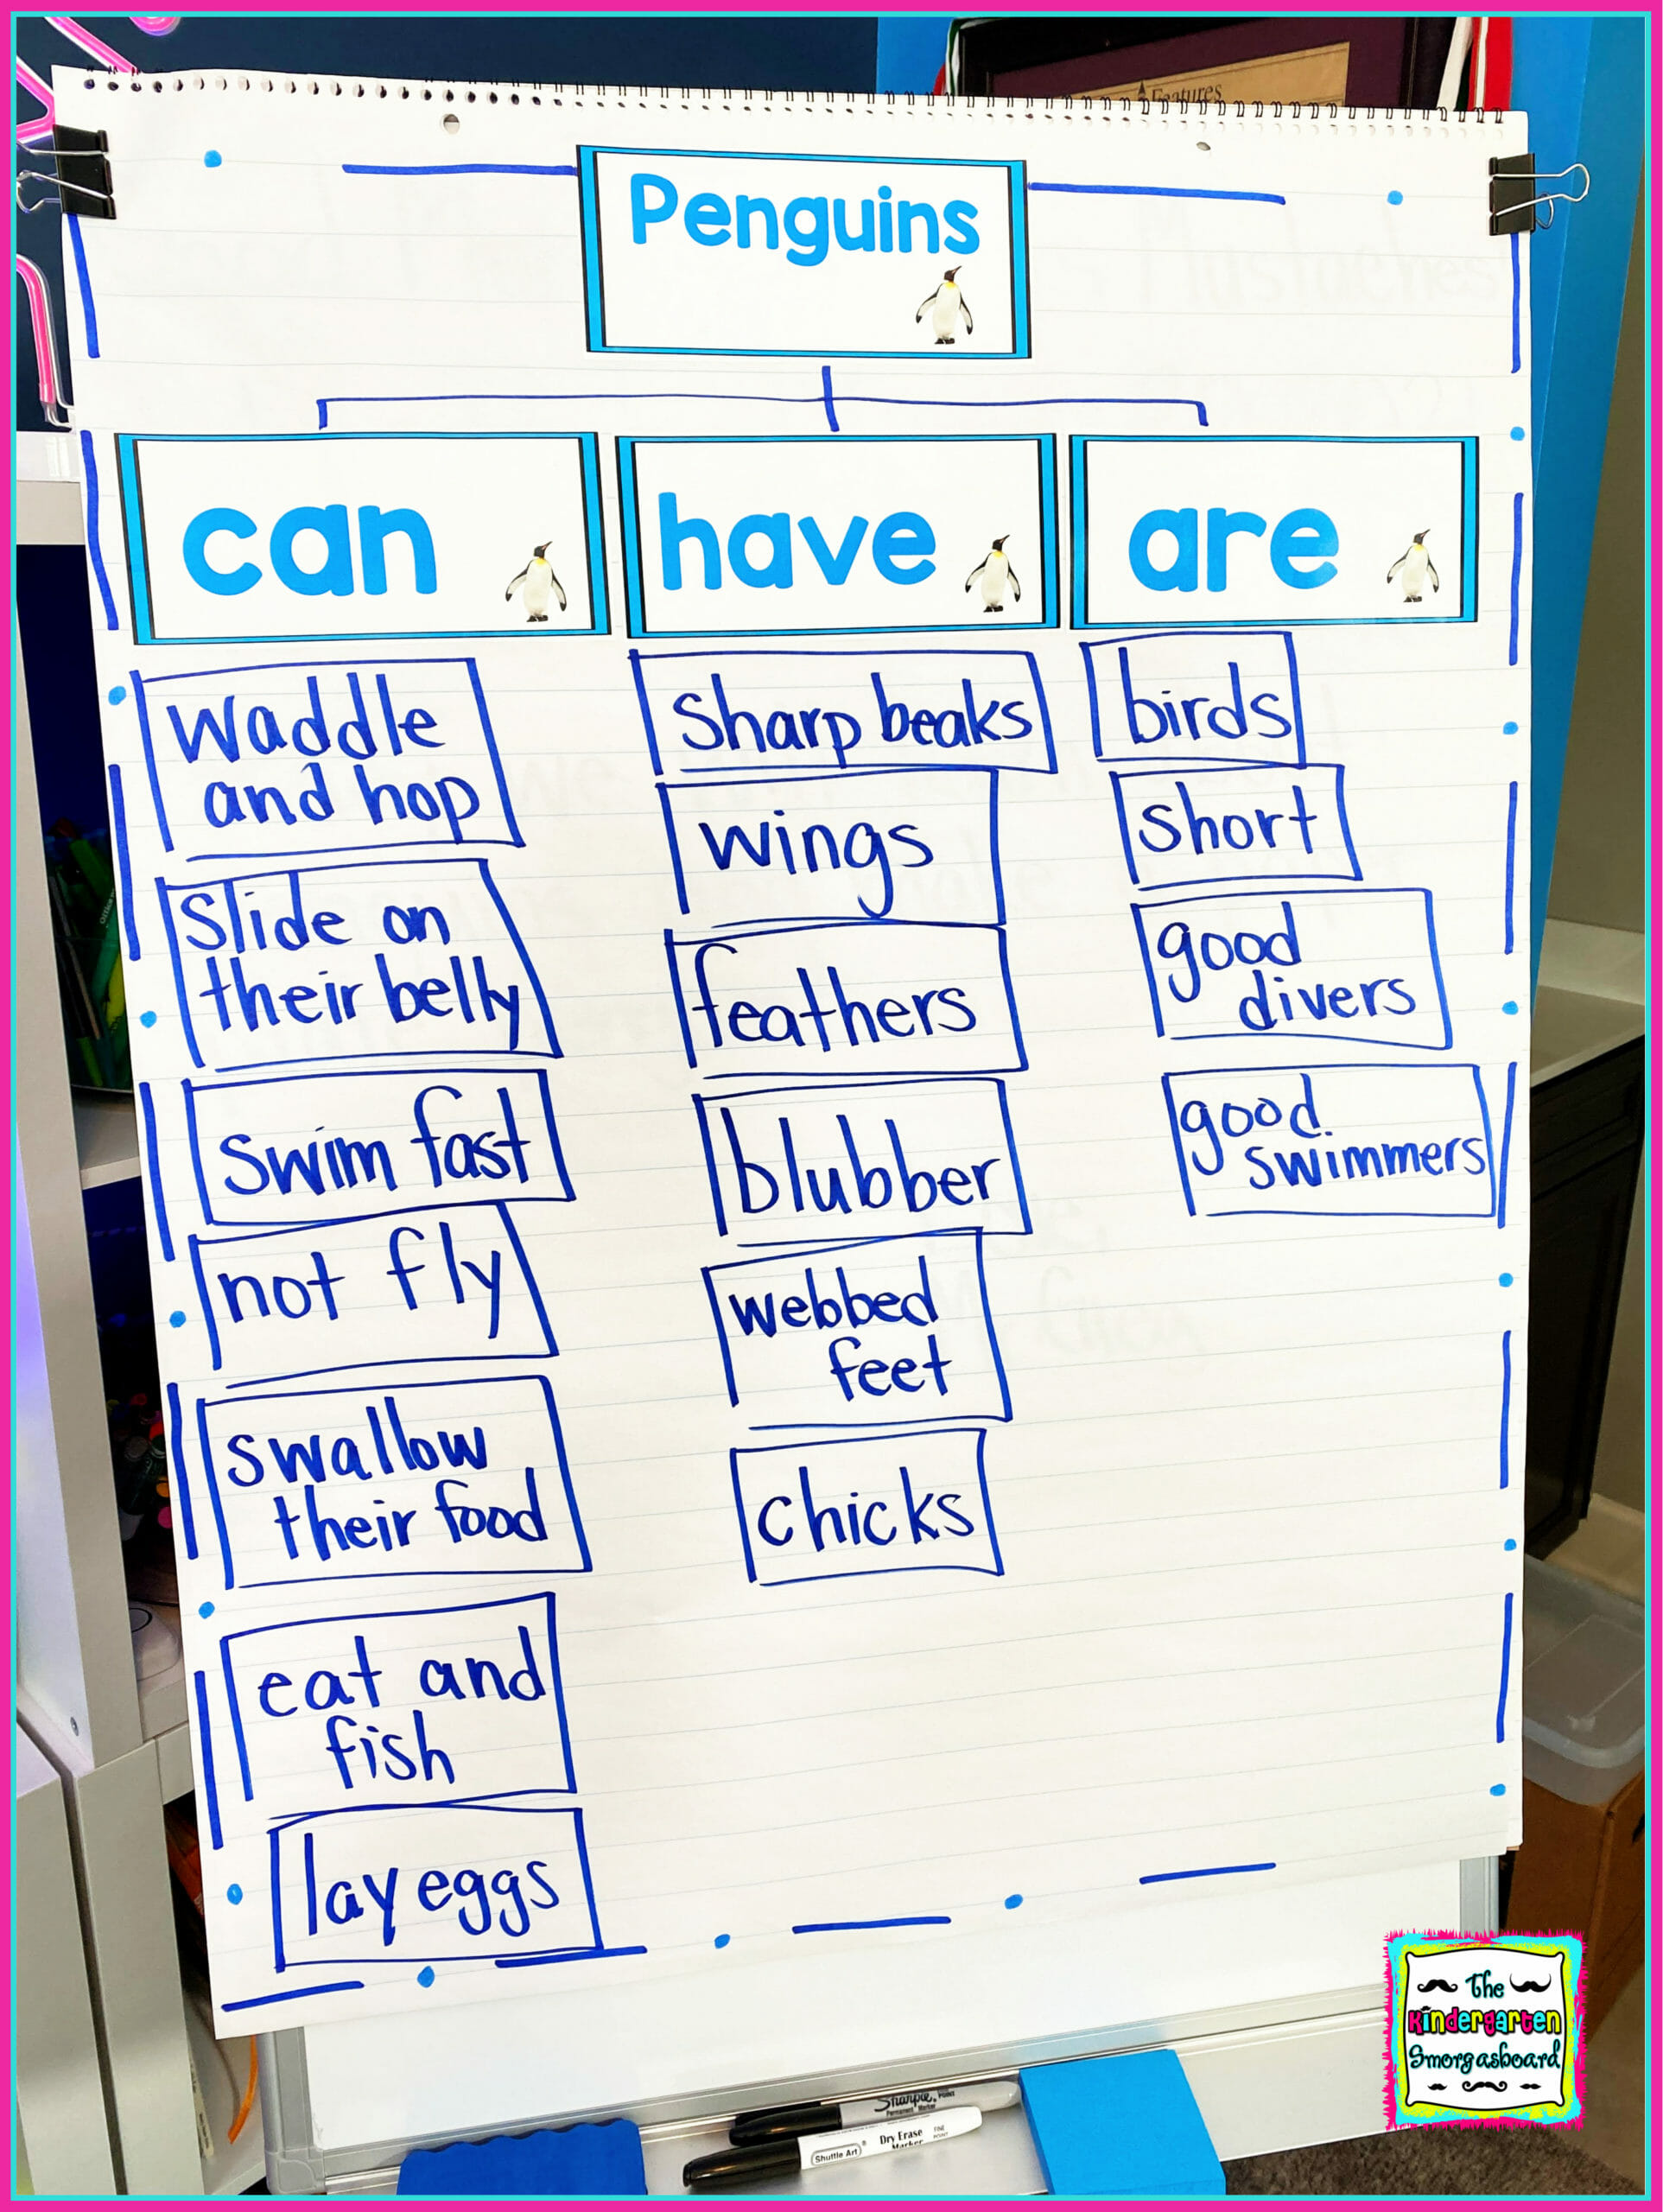 Features
Penguins
can
have
are
Waddle
and hop
Slide on
their belly
swim fast
not fly
swallow
their food
eat and
fish
lay eggs
Sharp beaks
wings
feathers
blubber
webbed
feet
chicks
birds
short
good
divers
good
swimmers
The
Kindergarten
Smorgasboard
Sharpie
Permanent Marker
Shuttle Art
Dry Erase
Marker
FINE
POINT